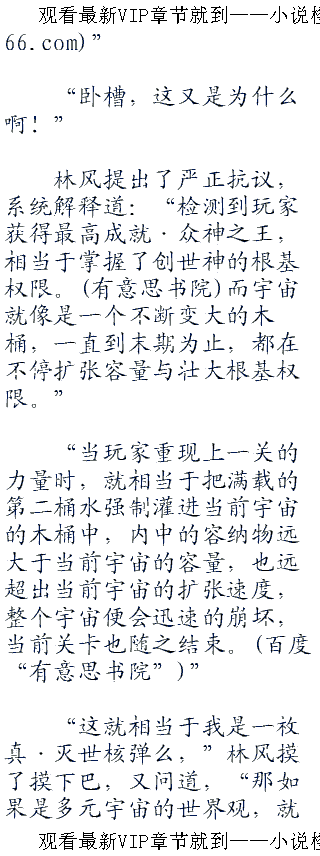 观看最新VIP章节就到——小说楼
66.com)”
“卧槽，这又是为什么
啊！”
林风提出了严正抗议，
系统解释道：“检测到玩家
获得最高成就·众神之王，
相当于掌握了创世神的根基
权限。(有意思书院)而宇宙
就像是一个不断变大的木
桶，一直到末期为止，都在
不停扩张容量与壮大根基权
限。”
“当玩家重现上一关的
力量时，就相当于把满载的
第二桶水强制灌进当前宇宙
的木桶中，内中的容纳物远
大于当前宇宙的容量，也远
超出当前宇宙的扩张速度，
整个宇宙便会迅速的崩坏，
当前关卡也随之结束。(百度
“有意思书院”)”
“这就相当于我是一枚
真·灭世核弹么，”林风摸
了摸下巴，又问道，“那如
果是多元宇宙的世界观，就
观看最新VIP章节就到——小说楼